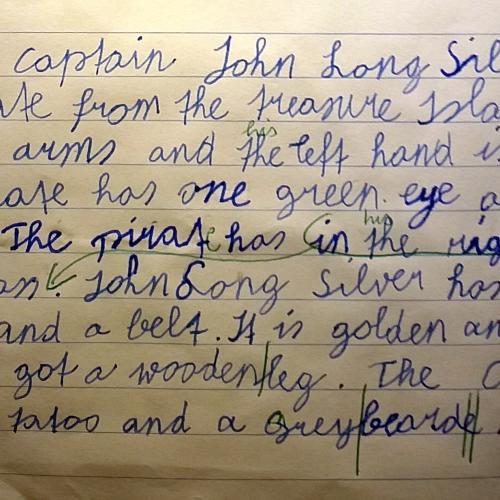 captain John Long Sil
from the treasure Isla
his
arms and the left hand is
has one green eye a
his
The pirate has in the rig
John Long Silver has
and a belt. It is golden an
got a wooden leg. The
tatoo and a grey bearde